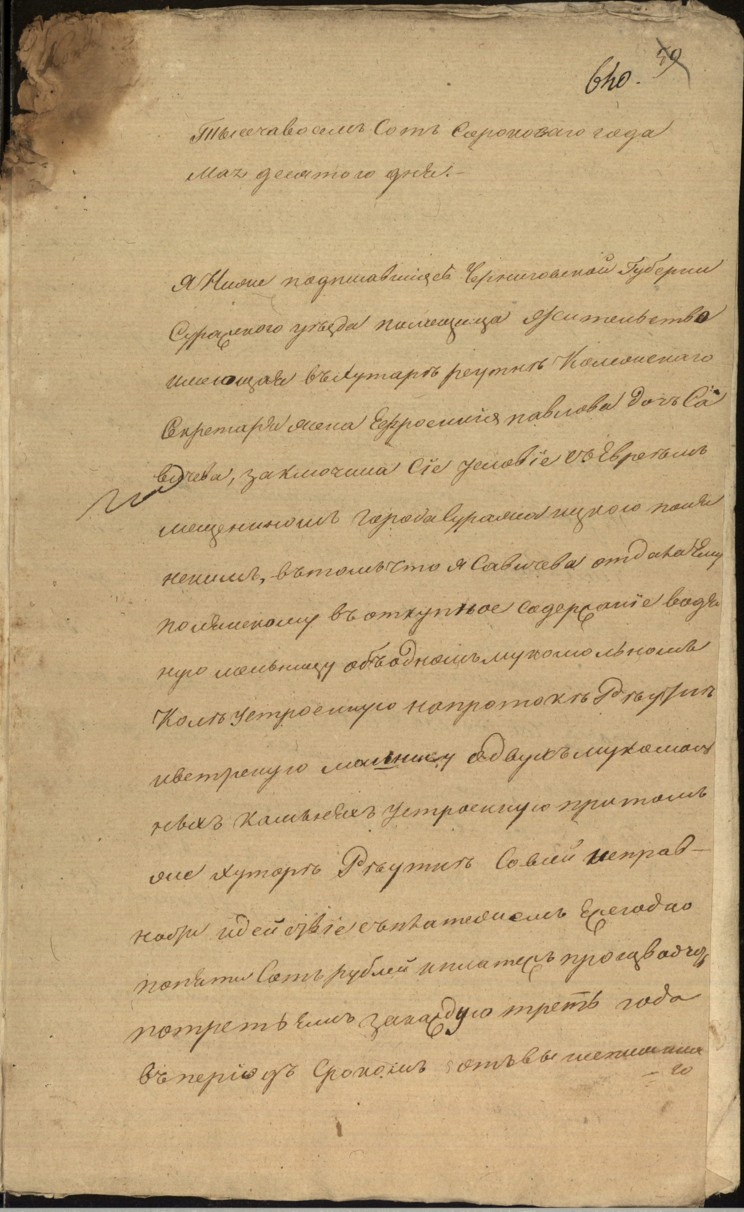 640. 49
Тысеча восемъ Сотъ Сороковаго года
Мая десятого дня.
я Ниже подписавшаяся Черниговской Губернии
Суражского уезда помещица Жительство
имеющая въ Хуторѣ реутинѣ Коллежскаго
Секретаря жена Ефросинія павлова дочь Са
вичева, заключила Сіе Условіе съ Евреемъ
мещениномъ города Суража ицкою поля
нскимъ, въ томъ что я Савичева отдала Ему
полянскому въ откупное содержаніе водя
ную мельницу объ одномъ мукомольномъ
Колѣ устроенную на протокѣ Рѣутинѣ
и ветреную мельницу о двухъ мукомоль
ныхъ камьняхъ устроенную при томъ
же Хуторѣ Рѣутинѣ Со всей исправ-
ностю и действіе съ платежемъ Ежегодно
по пяти Сотъ рублей и платежъ производить
по третьямъ за каждую третъ года
въ періодъ Срокомъ отъ выше писанна
го